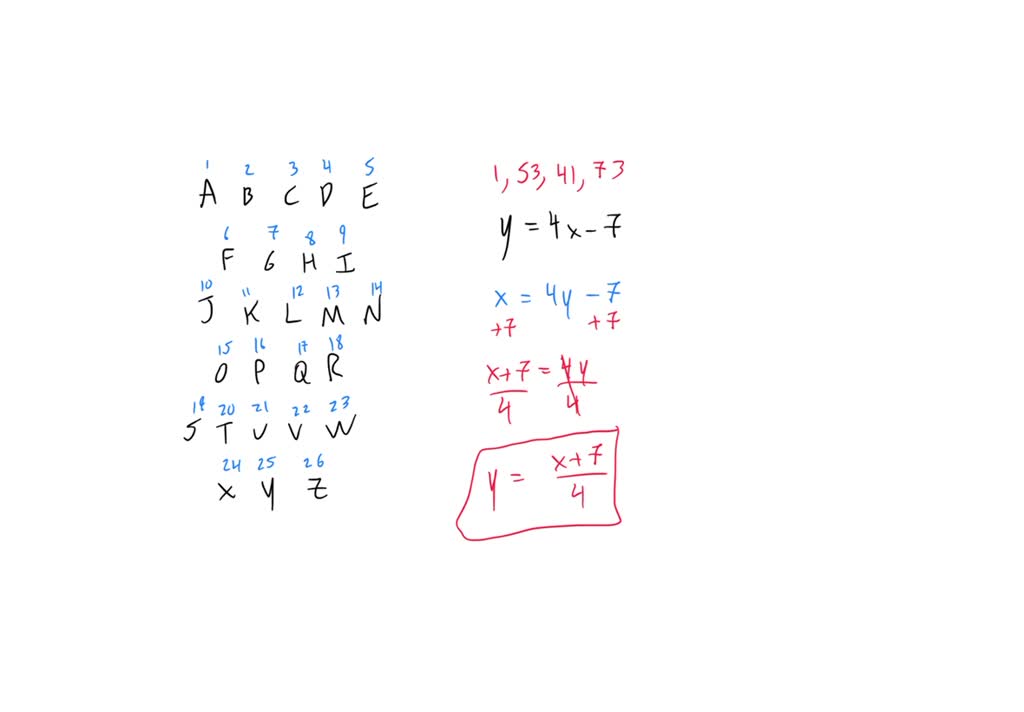 1 2 3 4 5
A B C D E
6 7 8 9
F G H I
10 11 12 13 14
J K L M N
15 16 17 18
O P Q R
19 20 21 22 23
S T U V W
24 25 26
X Y Z
1, 53, 41, 73
y = 4x - 7
x = 4y - 7
+7 +7
x+7 = 4y
4 4
y = x+7
4